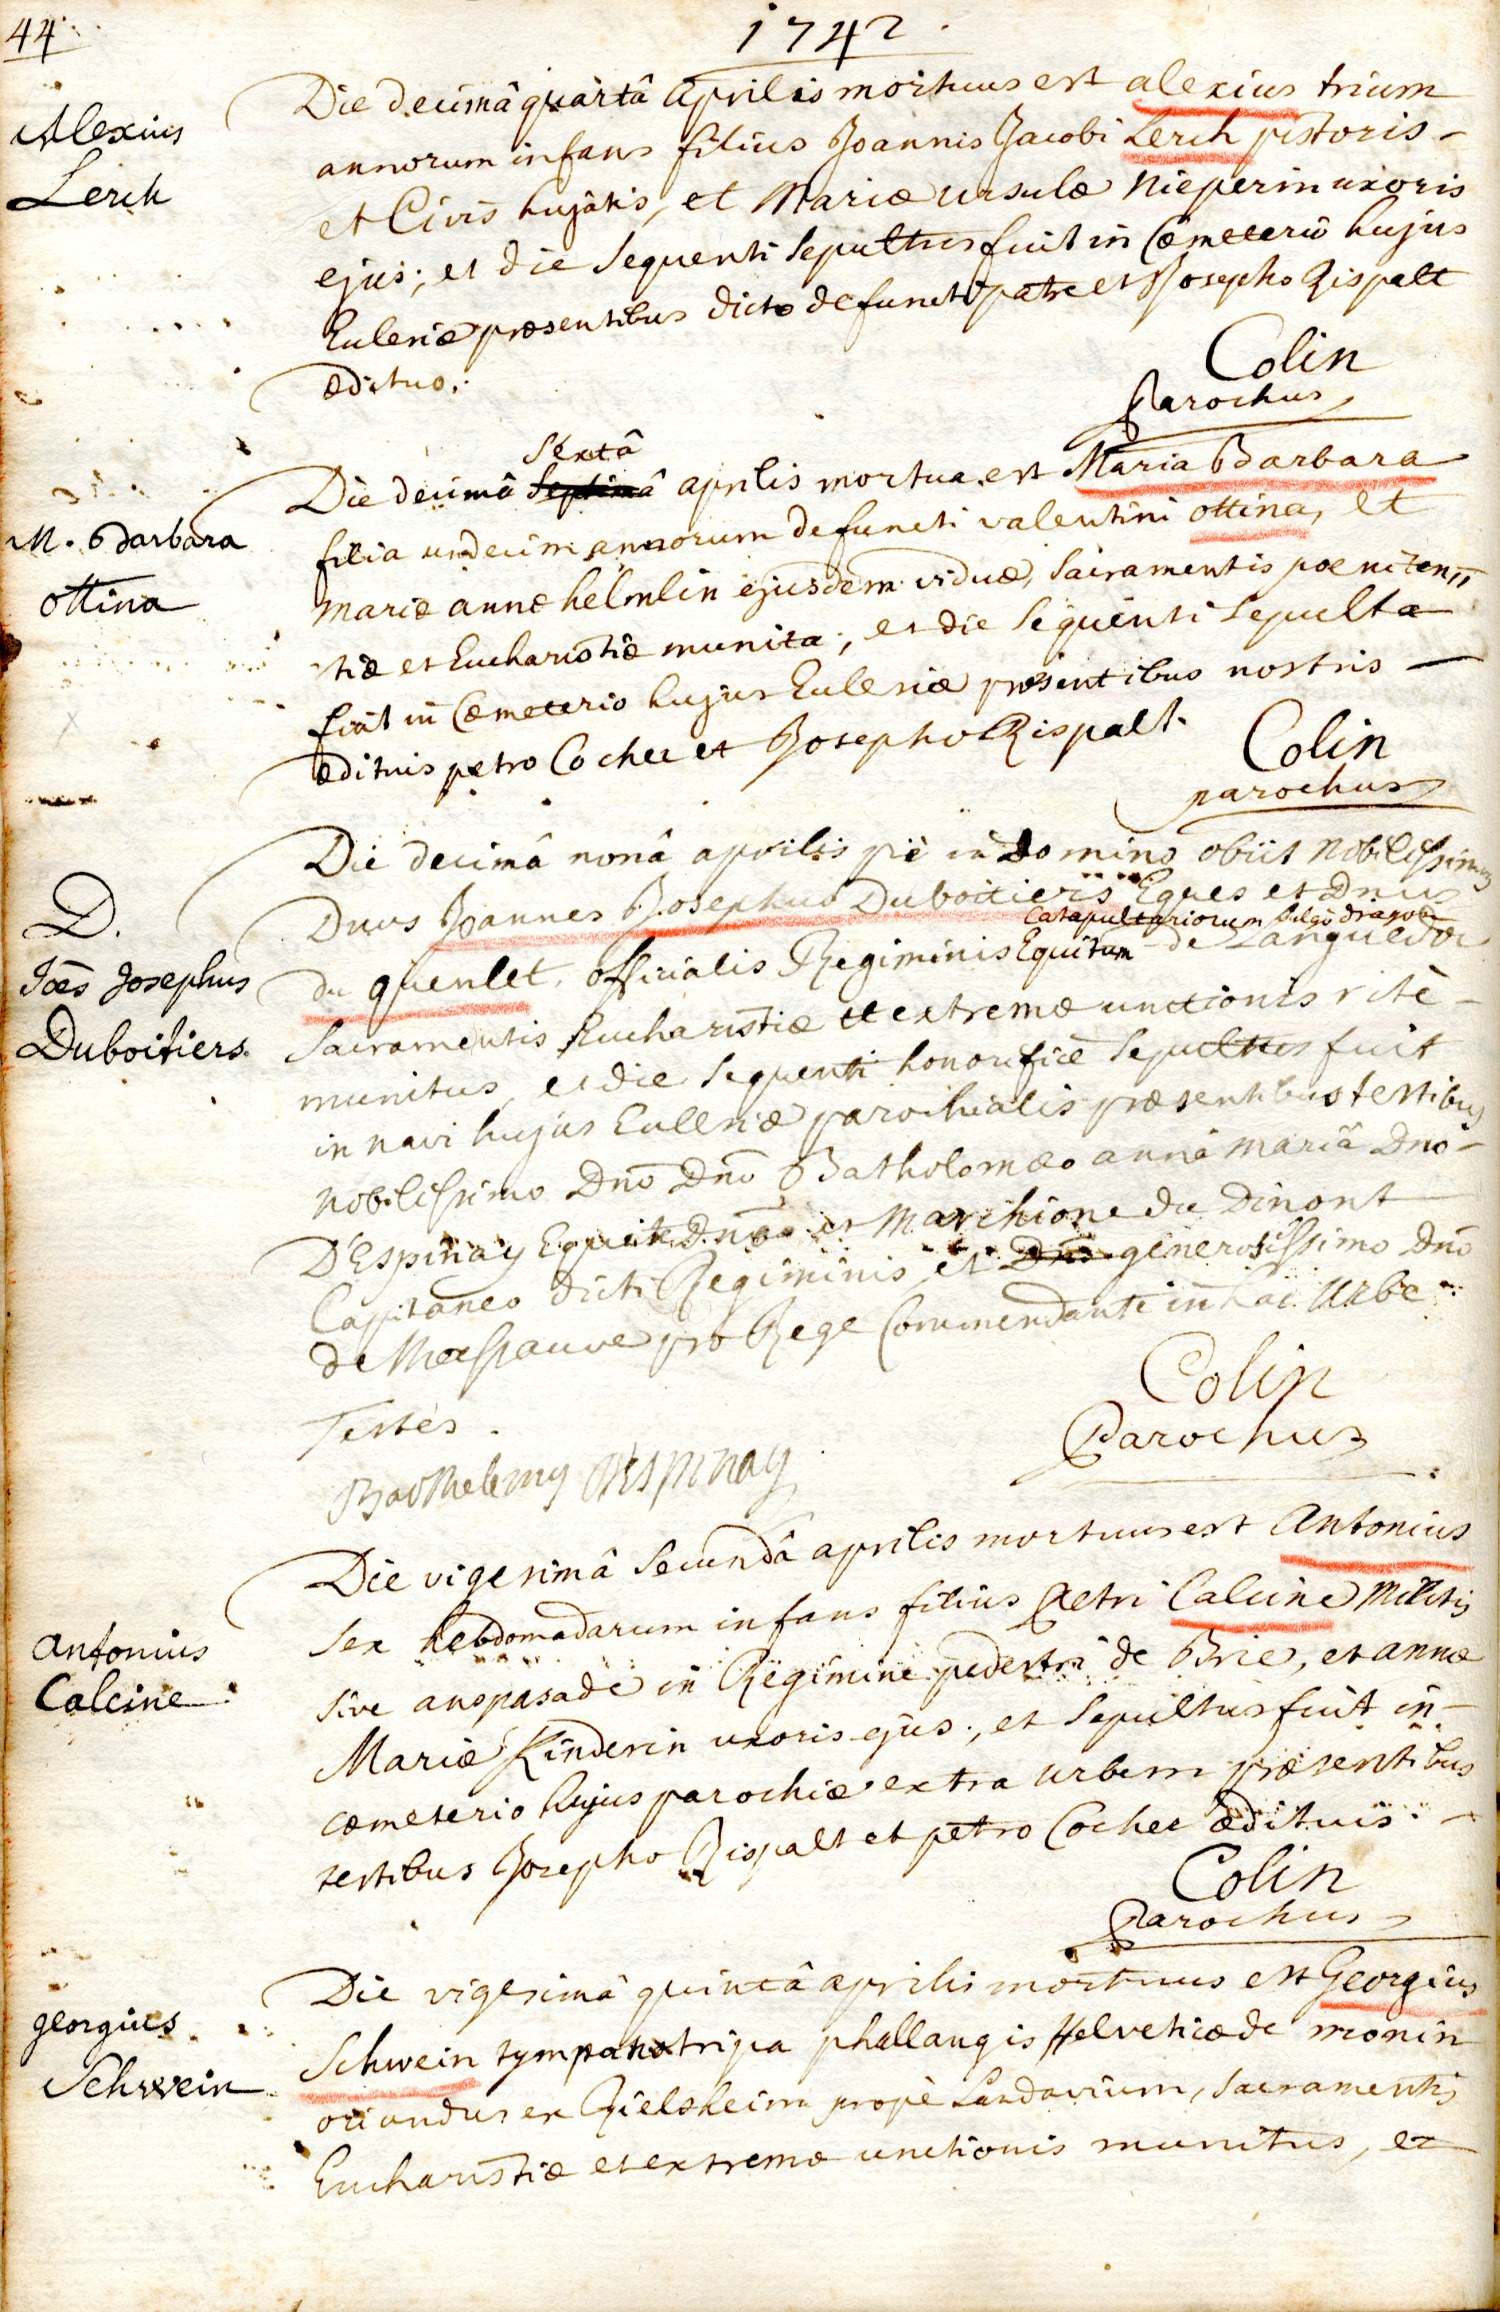 44
1742
Alexius
Lerch
Die decimâ quartâ aprilis mortuus est alexius trium
annorum infans filius Joannis Jacobi Lerch pistoris
et Civis hujatis, et Mariæ ursulæ Nieperin uxoris
ejus; et die sequenti sepultus fuit in Cœmeterio hujus
Eclesiæ præsentibus dicto defuncti patre et Josepho Rispalt
ædituo.
Colin
Parochus
M. Barbara
ottina
sextâ
Die decimâ septimâ aprilis mortua est Maria Barbara
filia undecim annorum defuncti valentini ottina, et
mariæ annæ helmlin ejusdem viduæ, sacramentis pœniten=
tiæ et Eucharistiæ munita; et die sequenti sepulta
fuit in Cœmeterio hujus Eclesiæ præsentibus nostris
ædituis petro Cochee et Josepho Rispalt.
Colin
parochus
D.
Joēs Josephus
Duboitiers.
Die decimâ nonâ aprilis piè in Domino obiit Nobilissimus
Dnus Joannes Josephus Duboitiers Eques et Dnus
Catapultariorum vulgò dragons
du quenlet, officialis Regiminis Equitum de Languedoc
sacramentis Eucharistiæ et extremæ unctionis ritè
munitus, et die sequenti honorificè sepultus fuit
in navi hujus Eclesiæ parochialis præsentibus testibus
nobilissimo Dnō Dnō Batholomæo annâ mariâ Dno
D'Espinay Equite Dno et Marchione du Dinont
Capitaneo dicti Regiminis, et Dnō generosissimo Dnō
de pro Rege Commendante in hac Urbe
Testes.
Colin
Parochus
Barthelemy DEspinay
antonius
Calcine
Die vigesimâ secundâ aprilis mortuus est Antonius
sex hebdomadarum infans filius Petri Calcine Militis
sive anspasade in Regimine pedestri de Brie, et annæ
Mariæ Kinderin uxoris ejus; et sepultus fuit in
cœmeterio hujus parochiæ extra urbem præsentibus
testibus Josepho Rispalt et petro Cochee ædituis.
Colin
Parochus
georgius
Schwein
Die vigesimâ quintâ aprilis mortuus est Georgius
Schwein tympanotripa phallangis Helveticæ de monin
oriundus ex Rielsheim propè Landavium, sacramentis
Eucharistiæ et extremæ unctionis munitus, et